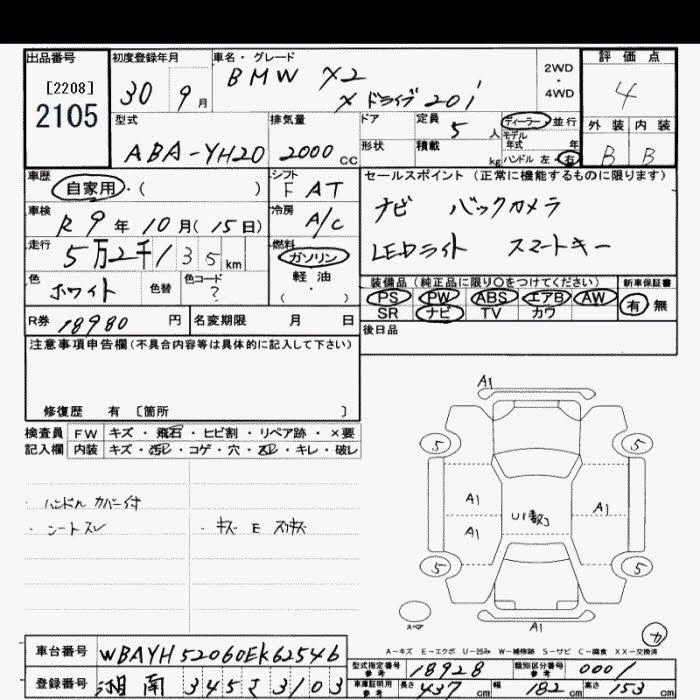 出品番号
[2208]
2105
初度登録年月
30 9月
車名・グレード
BMW X2
X ドライブ 20i
2WD
・
4WD
評価点
4
外装 内装
B B
型式
ABA-YH20
排気量
2000 CC
ドア
定員
5 人
形状
積載
kg
ディーラー 並行
モデル
年式 年
ハンドル 左・右
車歴
自家用・( )
シフト
F AT
車検
R 9年 10月(15日)
冷房
A/C
走行
5万2千135 km
燃料
ガソリン
軽油
( ・ )
色
ホワイト
色替
色コード
?
R券
18980 円
名変期限 月 日
セールスポイント (正常に機能するものに限ります)
ナビ バックカメラ
LEDライト スマートキー
装備品 (純正品に限り〇をつけてください)
PS PW ABS エアB AW
SR ナビ TV カワ
新車保証書
有 無
後日品
注意事項申告欄 (不具合内容等は具体的に記入して下さい)
修復歴 有 〔箇所 〕
検査員 FW キズ・飛石・ヒビ割・リペア跡・×要
記入欄 内装 キズ・汚レ・コゲ・穴・スレ・キレ・破レ
・ハンドル カバー付
・シートスレ
・キズ E スリキズ
A1
5
5
A1
A1
A1
U1数
5
5
A1
スペア
カ
A-キズ E-エクボ U-凹み W-補修跡 S-サビ C-腐食 XX-交換済
車台番号
WBAYH52060EK62546
登録番号
湘南 345 さ 3103
型式指定番号
参考
18928
類別区分番号
参考
0001
車庫証明用
参考
長さ 437 cm 幅 182 cm 高さ 153 cm